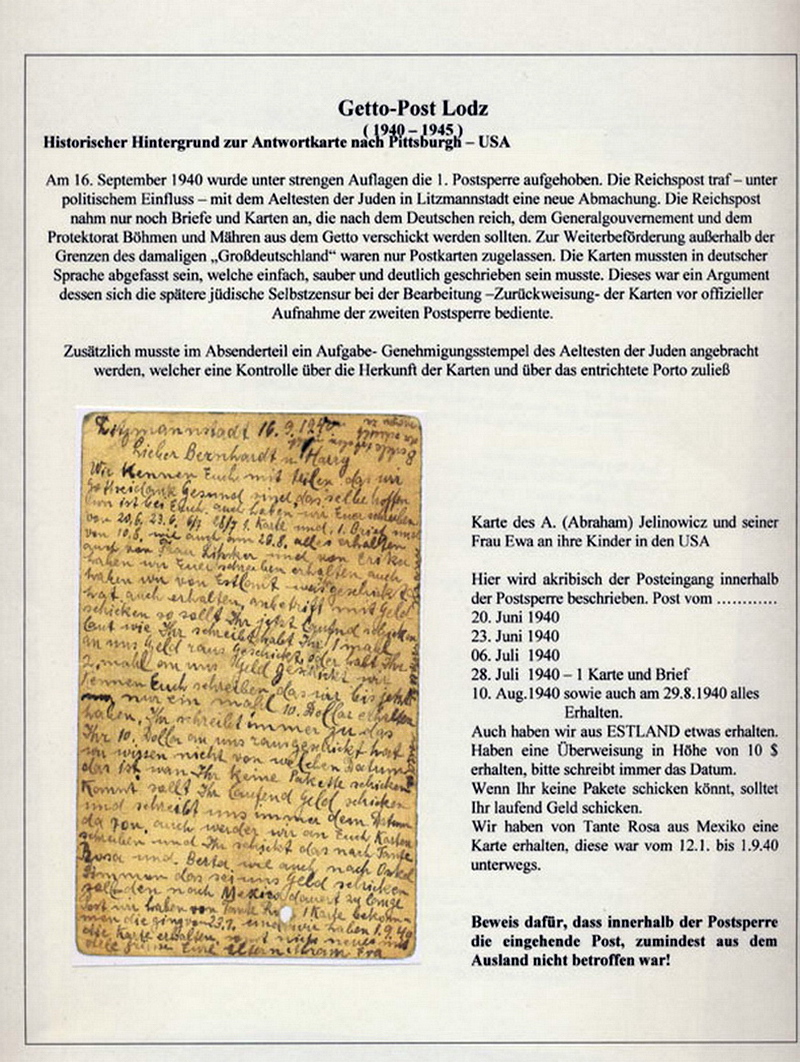 Getto-Post Lodz
( 1940 – 1945 )
Historischer Hintergrund zur Antwortkarte nach Pittsburgh – USA
Am 16. September 1940 wurde unter strengen Auflagen die 1. Postsperre aufgehoben. Die Reichspost traf – unter
politischem Einfluss – mit dem Aeltesten der Juden in Litzmannstadt eine neue Abmachung. Die Reichspost
nahm nur noch Briefe und Karten an, die nach dem Deutschen reich, dem Generalgouvernement und dem
Protektorat Böhmen und Mähren aus dem Getto verschickt werden sollten. Zur Weiterbeförderung außerhalb der
Grenzen des damaligen „Großdeutschland“ waren nur Postkarten zugelassen. Die Karten mussten in deutscher
Sprache abgefasst sein, welche einfach, sauber und deutlich geschrieben sein musste. Dieses war ein Argument
dessen sich die spätere jüdische Selbstzensur bei der Bearbeitung –Zurückweisung- der Karten vor offizieller
Aufnahme der zweiten Postsperre bediente.
Zusätzlich musste im Absenderteil ein Aufgabe- Genehmigungsstempel des Aeltesten der Juden angebracht
werden, welcher eine Kontrolle über die Herkunft der Karten und über das entrichtete Porto zuließ
Litzmannstadt 16.9.1940
Lieber Bernhardt u Harry
Wir kennen Euch mit teilen das wir
Gesund sind, das selbe hoffen
von 20,6, 23.6, 6/7 28/7 1. Karte und 1. Brief und
von 10.8. wie auch am 29.8. alles erhalten
auch von Frau und von
haben wir Euer schreiben erhalten auch
haben wir von Estland
hat auch erhalten, anbetrift mit Geld
schicken so sollt Ihr jetzt laufend schicken
laut wie Ihr schreibt habt Ihr 1 mahl
an uns Geld raus geschickt, oder habt Ihr
2. mahl an uns Geld geschickt wir
kennen Euch schreiben, das wir bis jetzt
nur ein mahl 10. Dollar erhalten
haben, Ihr schreibt immer zu das
Ihr 10. Dollar an uns rausgeschickt habt
wir wissen nicht von welchen Datum
das ist, wan Ihr keine Pakette schicken
kennt sollt Ihr laufend Geld schicken
und schreibt uns immer dem Datum
da von, auch werden wir an Euch Karten
schreiben und Ihr schickt das nach Tante
Rosa und Berta, wie auch nach Onkel
das sei uns Geld schicken
sollen nach Mexiko dauert zu lange
wir haben von Tante 1 Karte bekom-
men die ging von 23.1. wir haben 1.9.40
die Karte erhalten, sonst nichts neues
Eure Eltern Abram
Karte des A. (Abraham) Jelinowicz und seiner
Frau Ewa an ihre Kinder in den USA
Hier wird akribisch der Posteingang innerhalb
der Postsperre beschrieben. Post vom …………
20. Juni 1940
23. Juni 1940
06. Juli 1940
28. Juli 1940 – 1 Karte und Brief
10. Aug.1940 sowie auch am 29.8.1940 alles
Erhalten.
Auch haben wir aus ESTLAND etwas erhalten.
Haben eine Überweisung in Höhe von 10 $
erhalten, bitte schreibt immer das Datum.
Wenn Ihr keine Pakete schicken könnt, solltet
Ihr laufend Geld schicken.
Wir haben von Tante Rosa aus Mexiko eine
Karte erhalten, diese war vom 12.1. bis 1.9.40
unterwegs.
Beweis dafür, dass innerhalb der Postsperre
die eingehende Post, zumindest aus dem
Ausland nicht betroffen war!